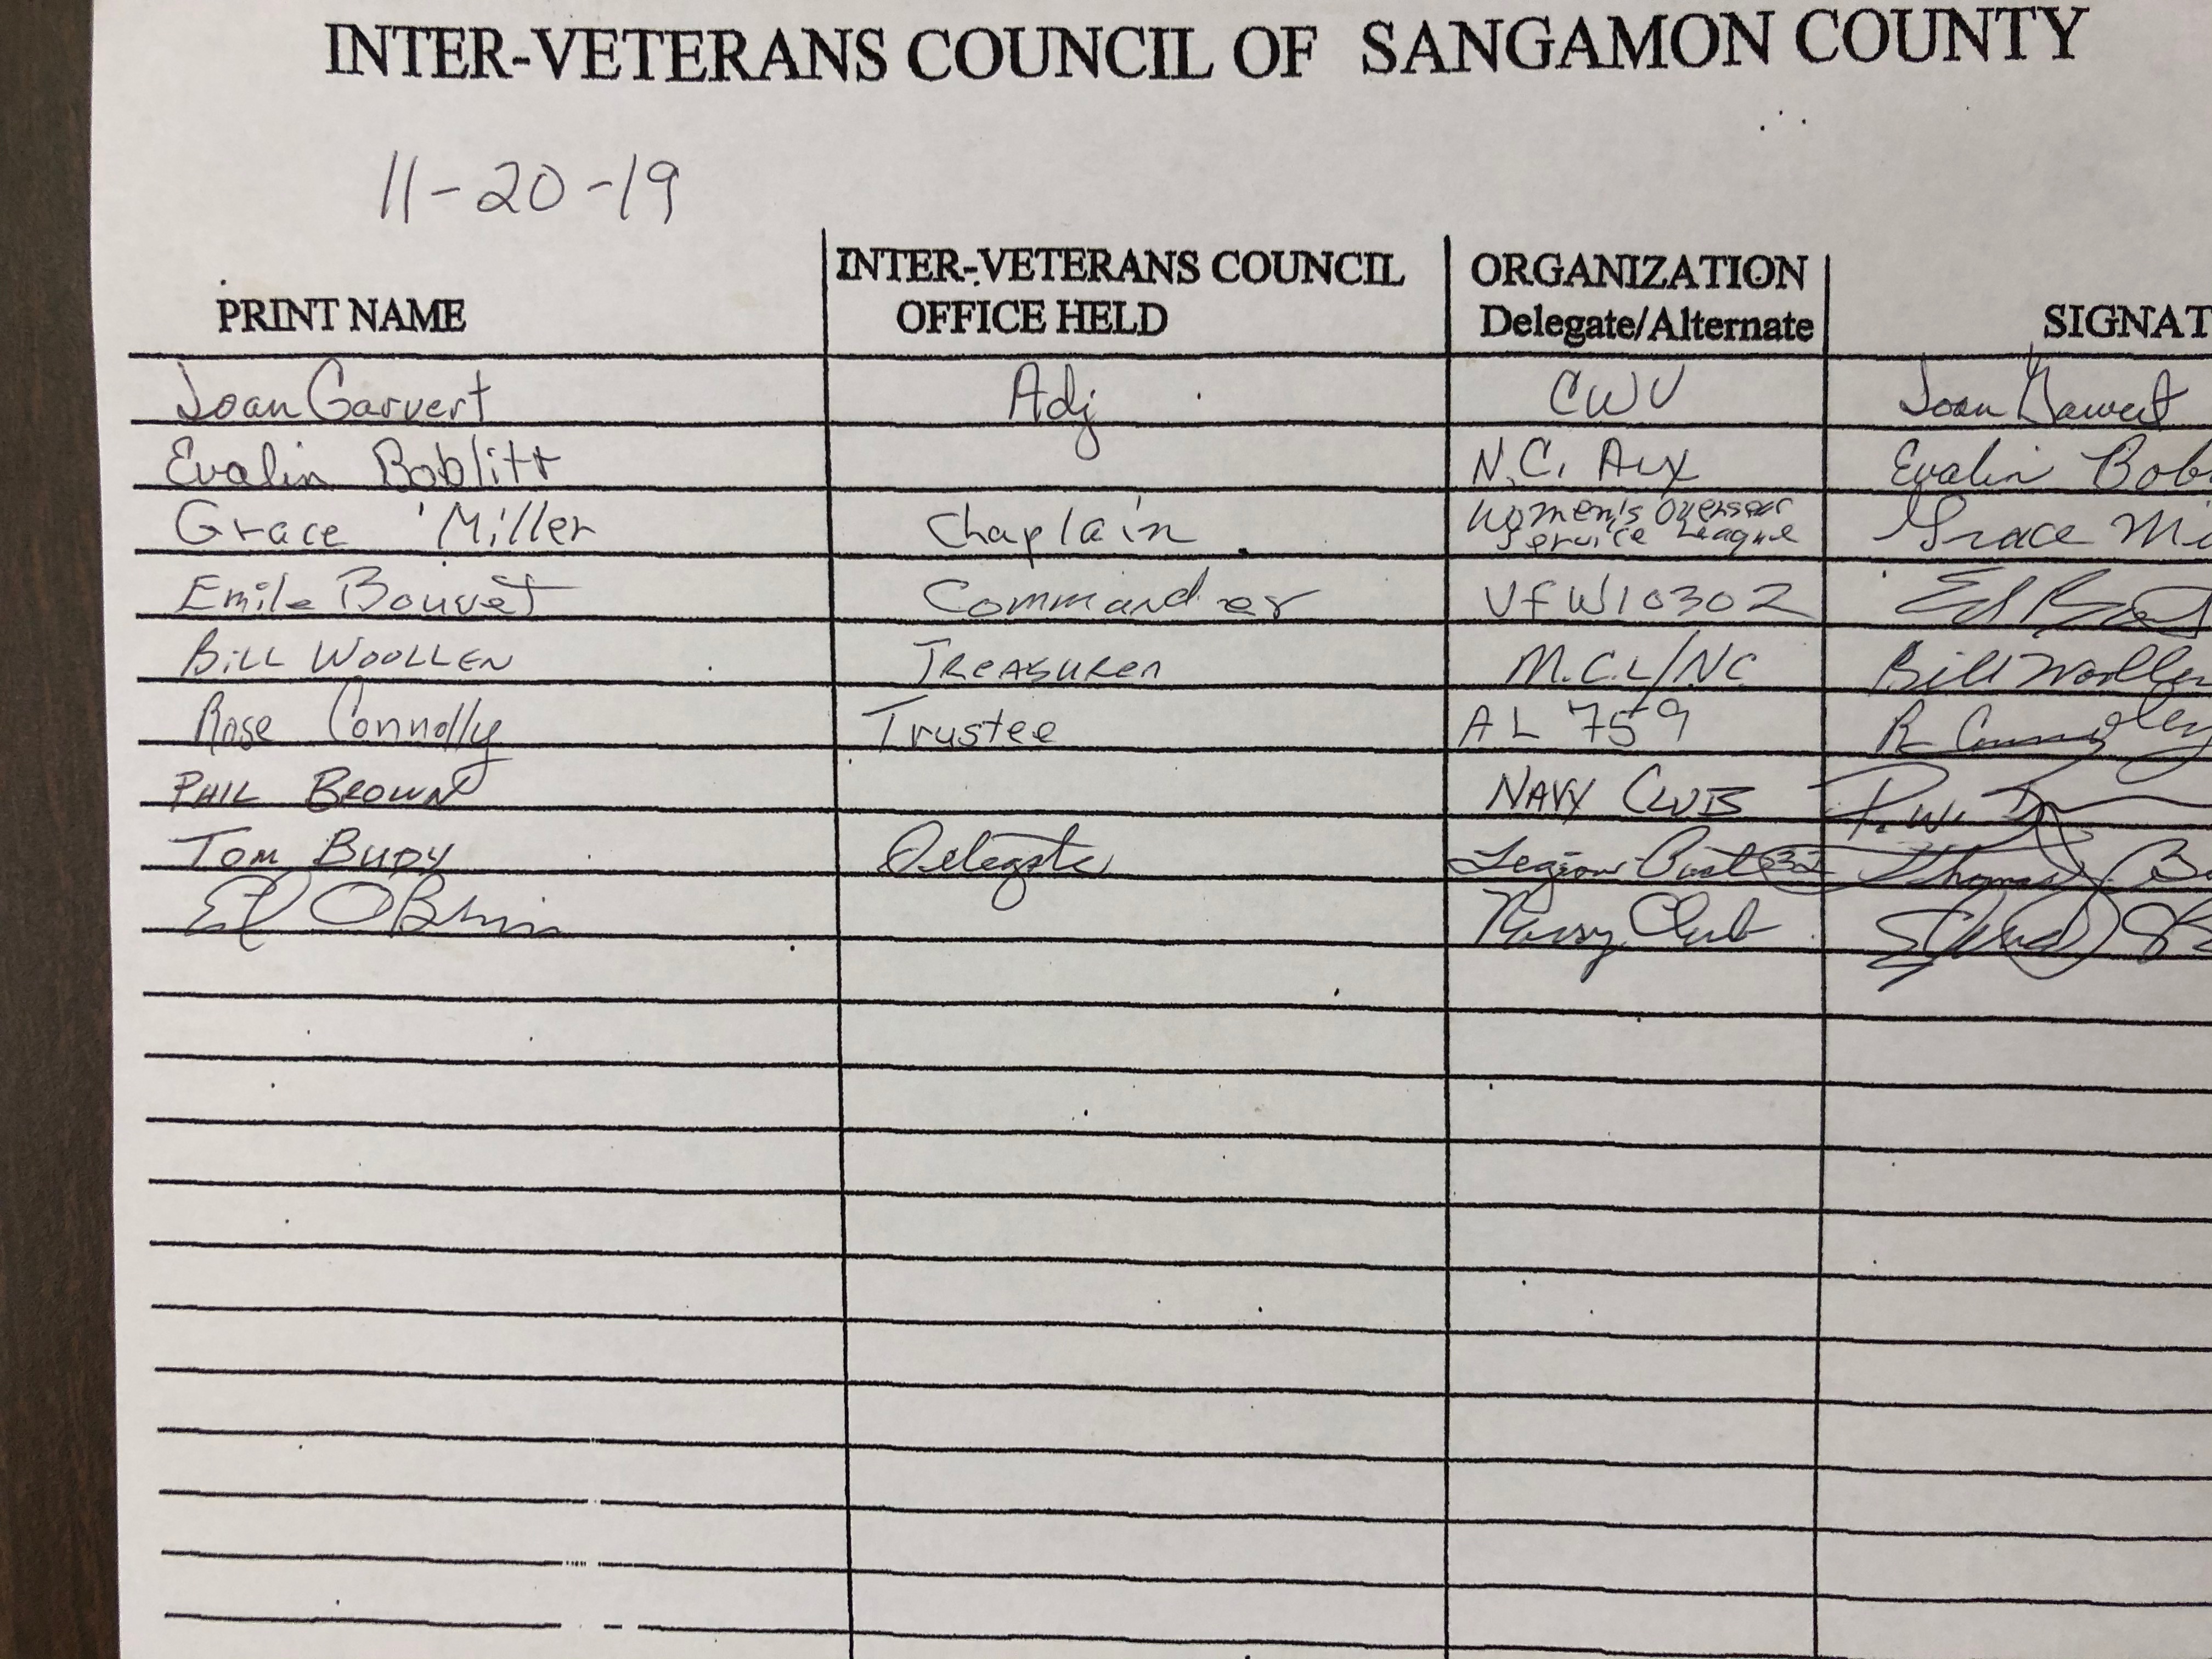 INTER-VETERANS COUNCIL OF SANGAMON COUNTY
11-20-19
PRINT NAME INTER-VETERANS COUNCIL OFFICE HELD ORGANIZATION Delegate/Alternate SIGNAT
Joan Garvert Adj CWV Joan Garvert
Evalin Boblitt N.C. Aux Evalin Bob
Grace Miller Chaplain Women's Overseas Service League Grace Mi
Emile Bouvet Commander VFW10302 Ed
BILL WOOLLEN TREASURER M.C.L/NC Bill Woollen
Rose Connolly Trustee AL 759 R
PHIL BROWN NAVY CLUB P. W.
TOM BUDY Delegate Legion Post 32 Thomas
Ed OBrien Navy Club